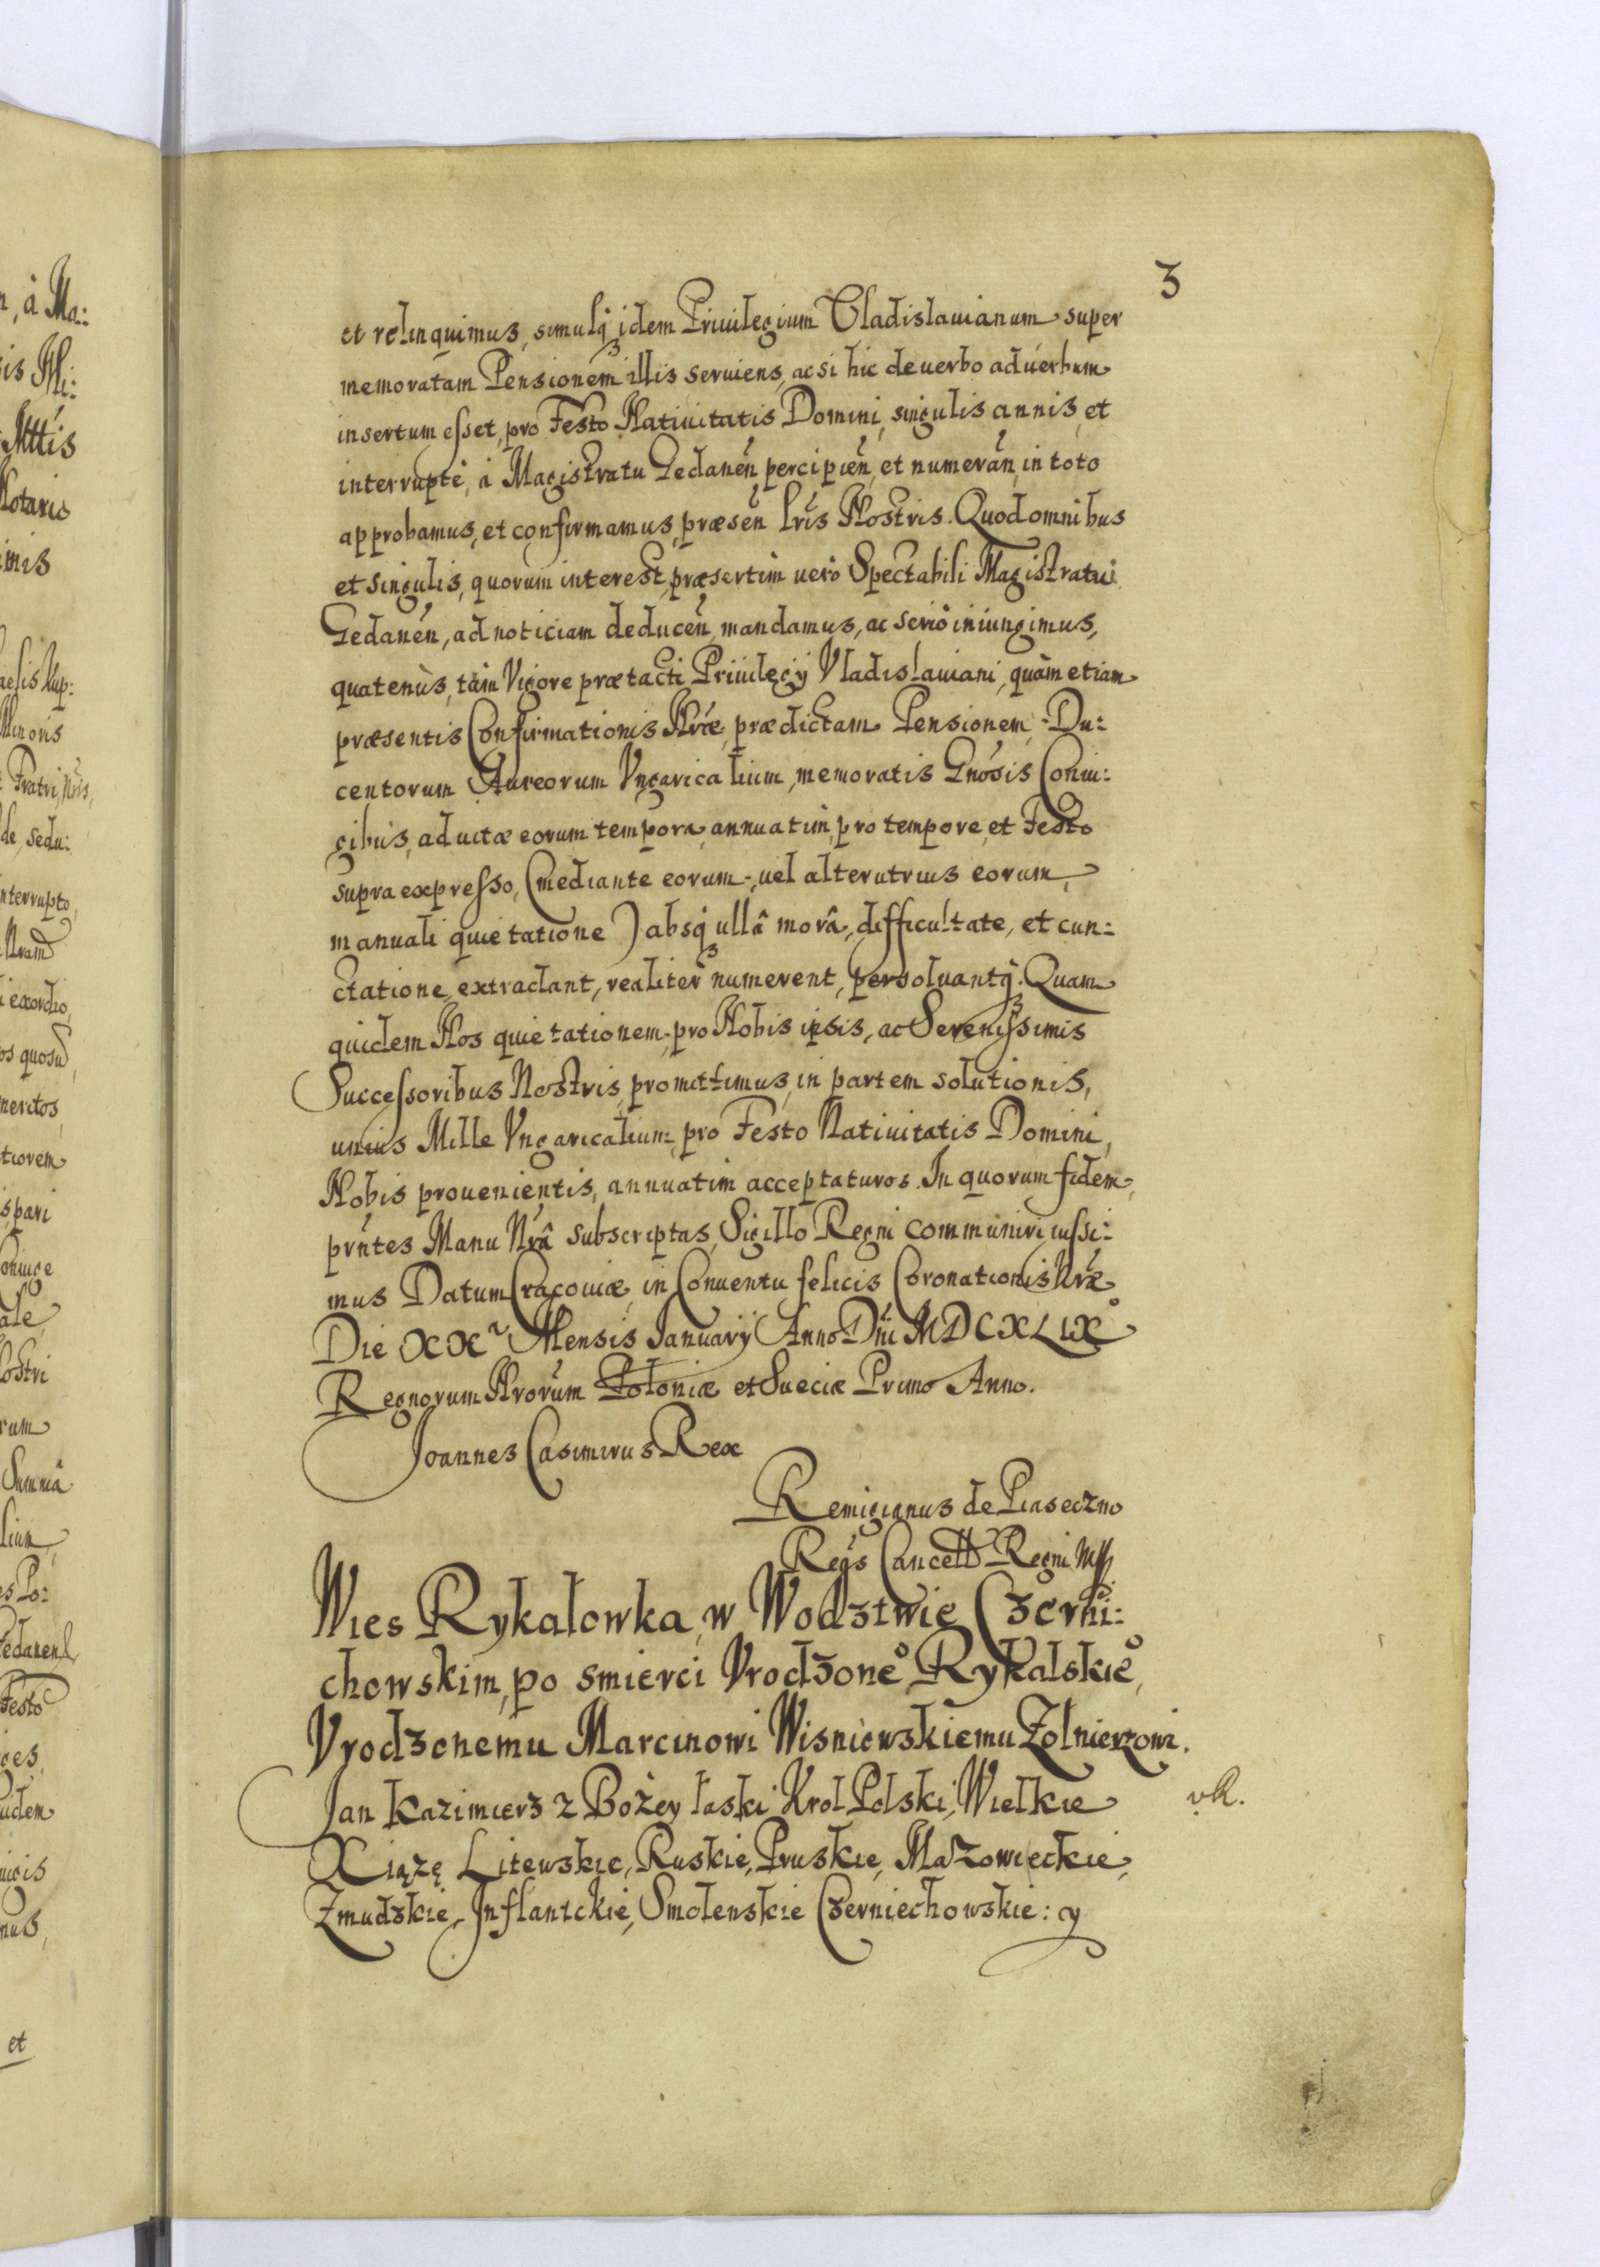 3
et relinquimus, simulq́ idem Priuilegium Vladislauianum super
memoratam Pensionem illis seruiens, ac si hic de uerbo ad uerbum
insertum esset, pro Festo Natiuitatis Domini, singulis annis, et
interruptè, à Magistratu Gedanen̄ percipien̄, et numeran̄, in toto
approbamus, et confirmamus, præsen̄ lrīs Nostris. Quod omnibus
et singulis, quorum interest, præsertim uerò Spectabili Magistratui
Gedanen̄, ad noticiam deducen̄, mandamus, ac seriò iniungimus,
quatenùs, tàm Vigore prætacti Priuilegij Vladislauiani, quàm etiam
præsentis Confirmationis Nrǣ, prædictam Pensionem, Du:
centorum Aureorum Vngaricalium, memoratis Gnōsis Coniu:
gibus, ad uitæ eorum tempora, annuatim, pro tempore, et Festo
supra expresso, (mediante eorum, uel alterutrius eorum,
manuali quietatione) absq́ ullâ morâ, difficultate, et cun:
ctatione, extradant, realiter numerent, persoluantq́. Quam
quidem Nos quietationem, pro Nobis ipsis, ac Serenissimis
Successoribus Nostris, promittimus, in partem solutionis,
unius Mille Vngaricalium, pro Festo Natiuitatis Domini,
Nobis prouenientis, annuatim acceptaturos. In quorum fidem,
prn̄tes Manu Nrā subscriptas, Sigillo Regni communiri iussi:
mus Datum Cracouiæ, in Conuentu felicis Coronationis Nrǣ
Die XX Mensis January Anno Dn̄i MDCXLIXº
Regnorum Nrorūm Poloniæ et Sueciæ Primo Anno.
Joannes Casimirus Rex
Remigianus de Piaseczno
Regs Cancell Regni Mp
Wies Rykałowka, w Wodztwie Czerni:
chowskim, po smierci Vrodzoneº Rykalskieº,
Vrodzonemu Marcinowi Wisniewskiemu Żołnierzowi.
Jan Kazimierz z Bożey łaski Krol Polski, Wielkie
vR.
Xiązę Litewskie, Ruskie, Pruskie, Mazowieckie,
Zmudzkie, Inflantckie, Smolenskie Czerniechowskie: y